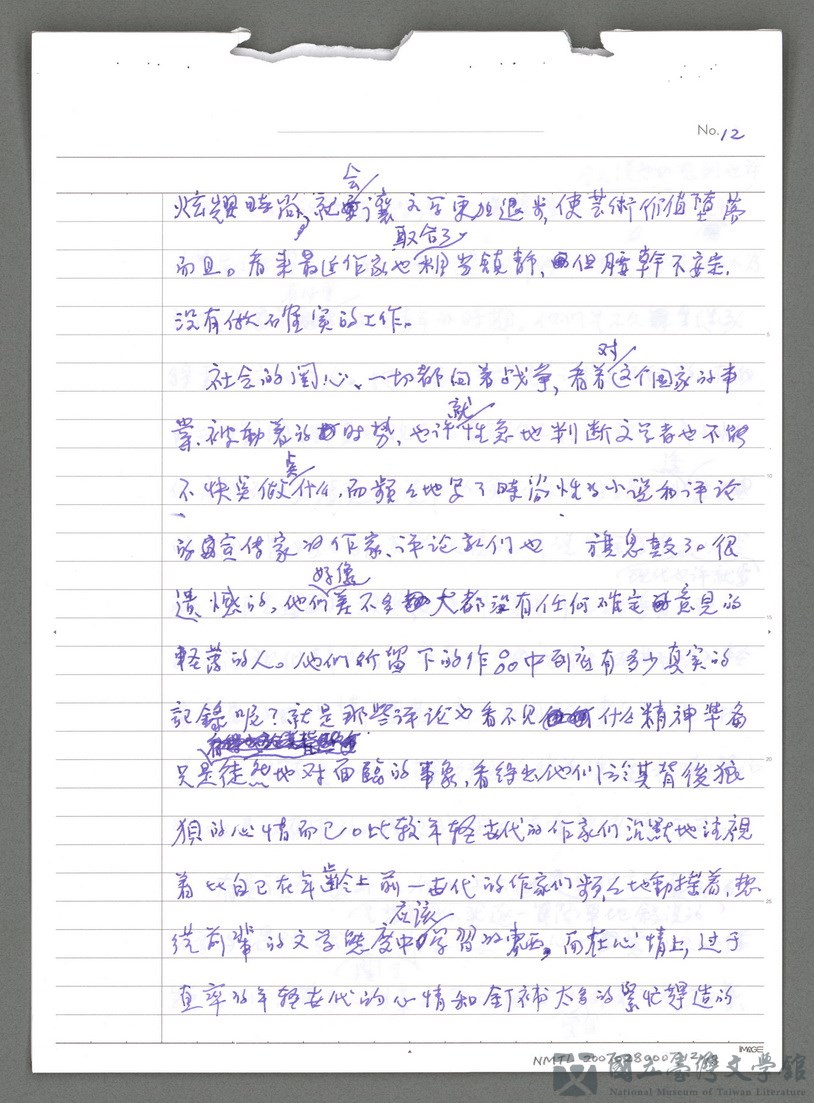 No. 12
会
炫耀時尚,就讓文学更加退步,使芸術价值墮落
取合了
而且。看来最近作家也相当鎮静,但腰幹不安定,
没有做確实的工作。
对
社会的関心、一切都向着战争,看着这个国家的事
就
業、被動着的时势,也许性急地判断文学者也不能
点
不快做什么,而頻々地写了時尚性的小说和评论
的宣传家的作家、评论家们也 旗息鼓了。很
好像
遺憾的,他们差不多大都没有任何確定意見的
軽薄的人。他们所留下的作品中到底有多少真实的
記録呢?就是那些评论也看不見什么精神準备
只是徒然地对面臨的事象,看得出他们於其背後狼
狽的心情而已。比较年軽世代的作家们沉默地注視
着比自己在年齡上前一世代的作家们頻々地動摇着,想
应该
從前輩的文学態度中学習的東西。而在心情上,过于
直率的年軽世代的心情和釘補太多的緊忙鍛造的
IMAGE
NMTL 20070280007
國立臺灣文學館
National Museum of Taiwan Literature